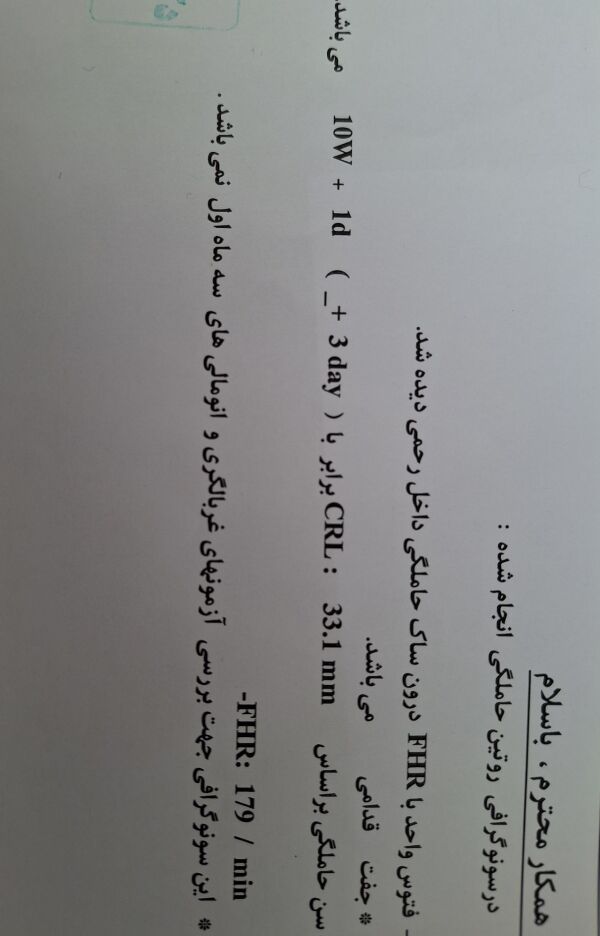 همکار محترم ، باسلام
درسونوگرافی روتین حاملگی انجام شده :
- فتوس واحد با FHR درون ساک حاملگی داخل رحمی دیده شد.
* جفت قدامی می باشد.
سن حاملگی براساس CRL : 33.1 mm برابر با ( _+ 3 day ) 10W + 1d می باشد.
-FHR: 179 / min
* این سونوگرافی جهت بررسی آزمونهای غربالگری و انومالی های سه ماه اول نمی باشد .